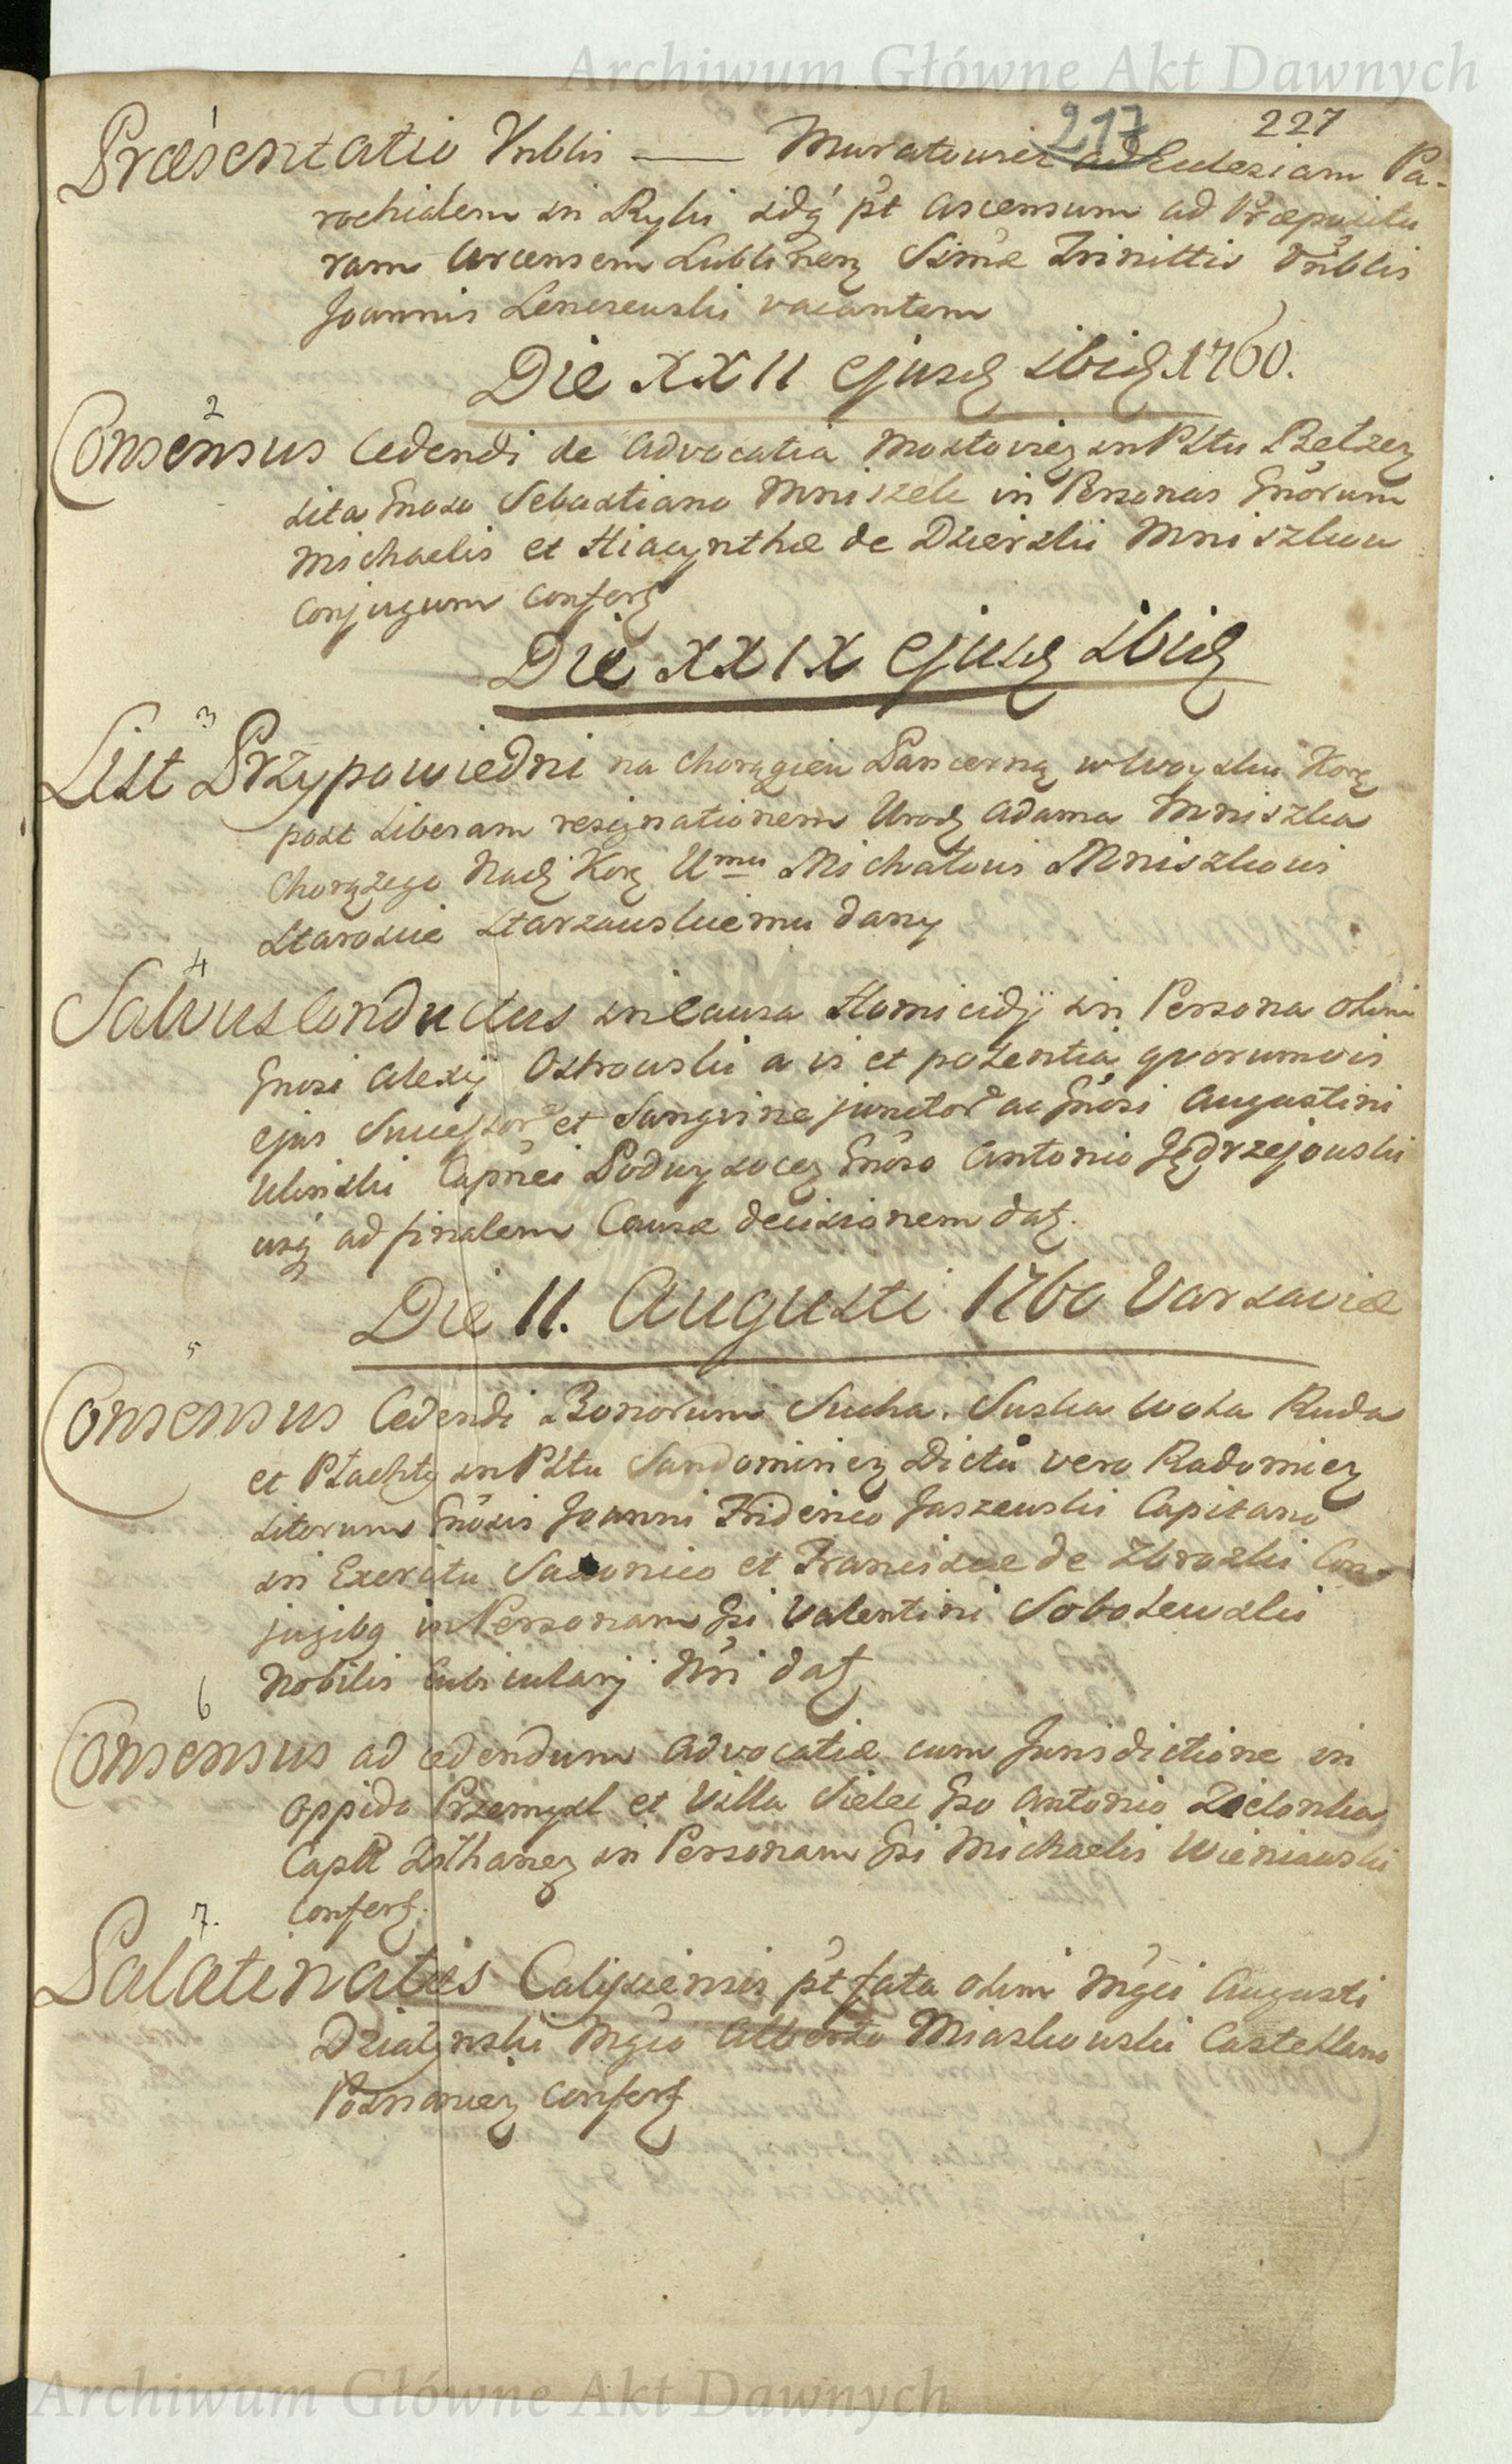 Archiwum Główne Akt Dawnych
217 227
1
Præsentatio Vnblis —— Muratowicz ad Ecclesiam Pa-
rochialem in Ryki idq pt ascensum ad Præpositu
ram Arcensem Lublinen Simæ Trinittis Vnblis
Joannis Lenczewski vacantem
Die XXII ejusd ibid 1760.
2
Consensus Cedendi de Advocatia Mostovien in Pltu Belzen
sita Gnoso Sebastiano Mniszek in Personas Gnorum
Michaelis et Hiacynthæ de Dzierzki Mniszkow
Conjugum Confert
Die XXIX ejusd ibid
3
List Przypowiedni na Chorągiew Pancerną w Woysku Kor
post Liberam resignationem Urod Adama Mniszka
Chorążego Nad Kor Umu Michałowi Mniszkowi
Staroście Starzawskiemu dany
4
Salvus Conductus in Causa Homicidij in Persona olim
Gnosi Alexij Ostrowski a vi et potentia quorumvis
ejus Successor et Sangvine junctor ac Gnosi Augustini
Ulinski Capnei Podwysocen Gnoso Antonio Jędrzejowski
usq ad finalem Causæ decisionem dat.
Die 11. Augusti 1760 Varsaviæ
5
Consensus Cedendi Bonorum Sucha. Suska Wola Ruda
et Płachty in Pltu Sandomirien Dictu vero Radomien
sitorum Gnosis Joanni Friderico Jaszewski Capitano
in Exercitu Saxonico et Franciscæ de Zbroszki Con-
jugibq in Personam Gsi Valentini Sobolewski
Nobilis Cubicularij Nri dat
6
Consensus ad cedendum Advocatiæ cum Jurisdictione in
oppido Przemysl et Villa Sielec Gso Antonio Zielonka
Capit Zythanen in Personam Gsi Michaelis Wieniawski
Confert.
7.
Palatinatus Calissiensis pt fata olim Mgci Augusti
Działynski Mgco Alberto Miaskowski Castellano
Poznanien Confert
Archiwum Główne Akt Dawnych